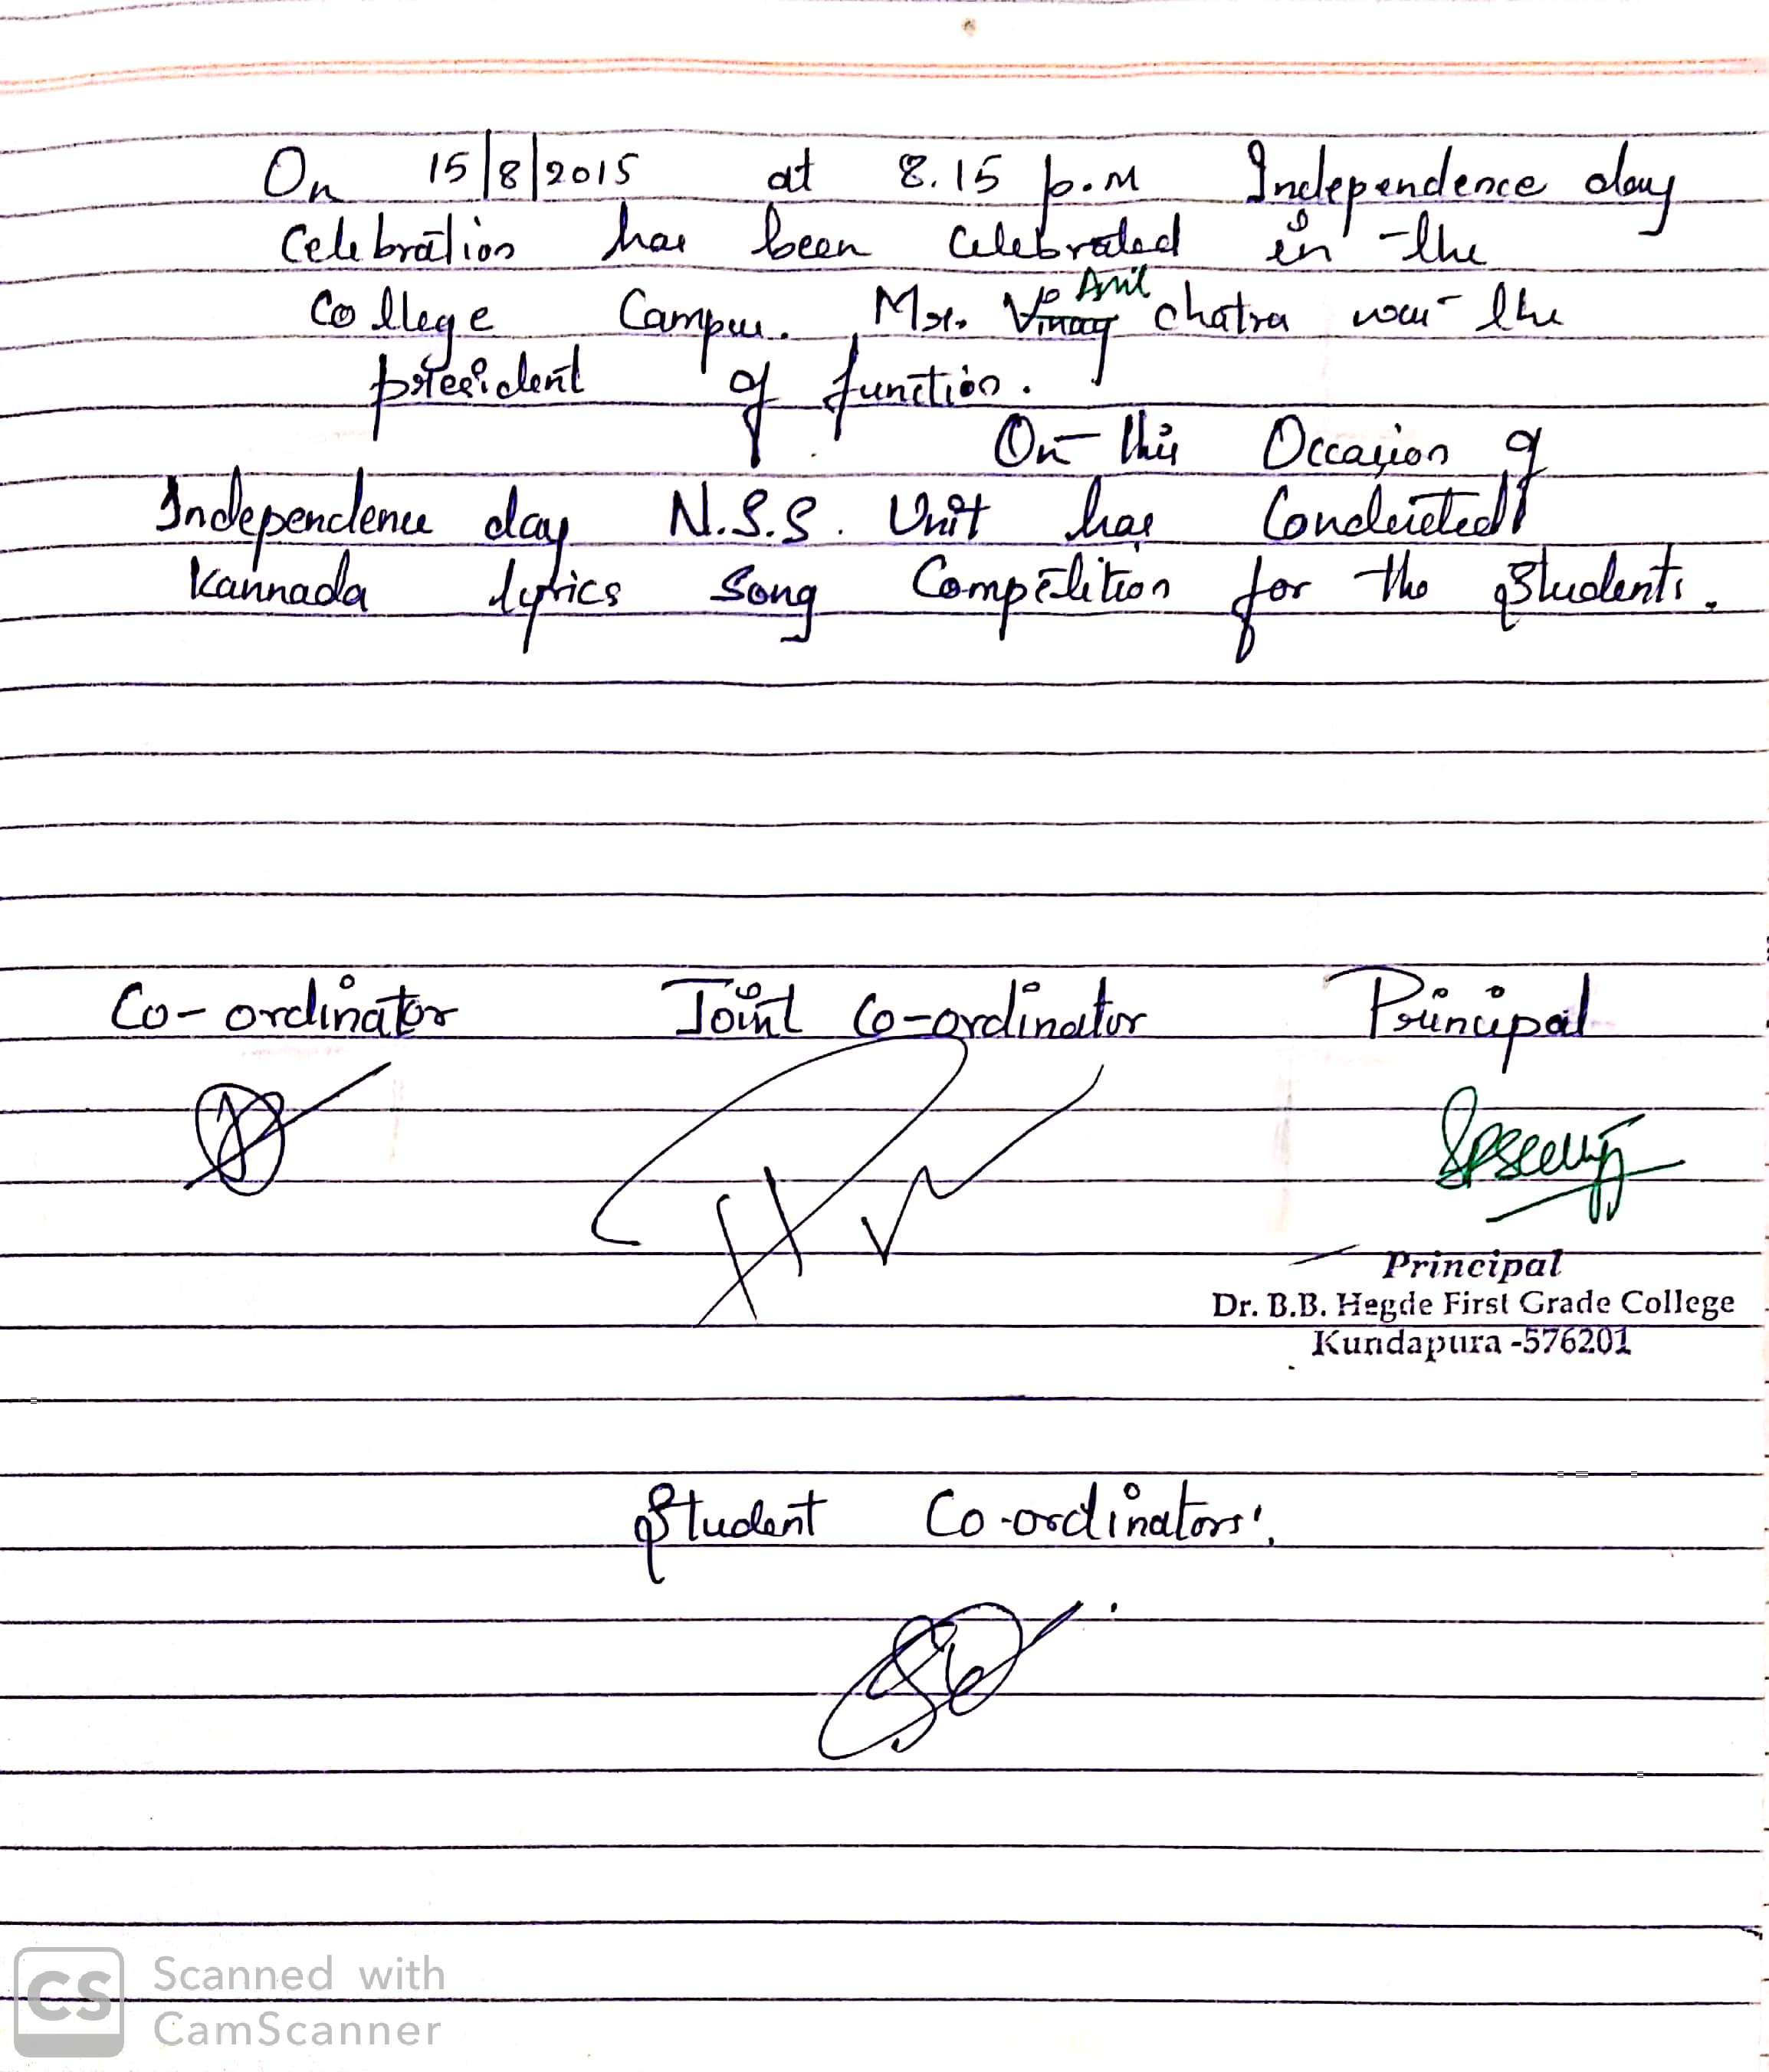 On 15/8/2015 at 8.15 p.M Independence day
Celebration has been Celebrated in the
College Campus. Mr. Vinay Anil chatra was the
president of function.
On this Occasion of
Independence day N.S.S. Unit has Conducted
Kannada lyrics Song Competition for the Students.
Co-ordinator Joint Co-ordinator Principal
Principal
Dr. B.B. Hegde First Grade College
Kundapura -576201
Student Co-ordinators.
CS Scanned with
CamScanner